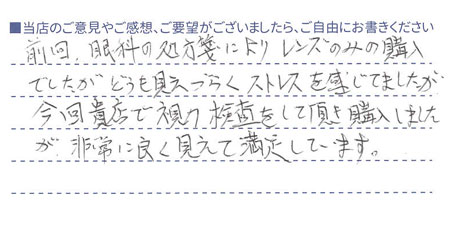 ■当店のご意見やご感想、ご要望がございましたら、ご自由にお書きください
前回、眼科の処方箋によりレンズのみの購入
でしたがどうも見えづらくストレスを感じてましたが
今回貴店で視力検査をして頂き購入しました
が、非常に良く見えて満足しています。